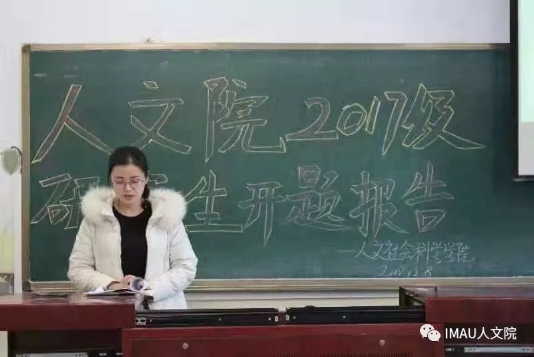 人文院2017级
研究生开题报告
—人文社会科学学院
IMAU人文院